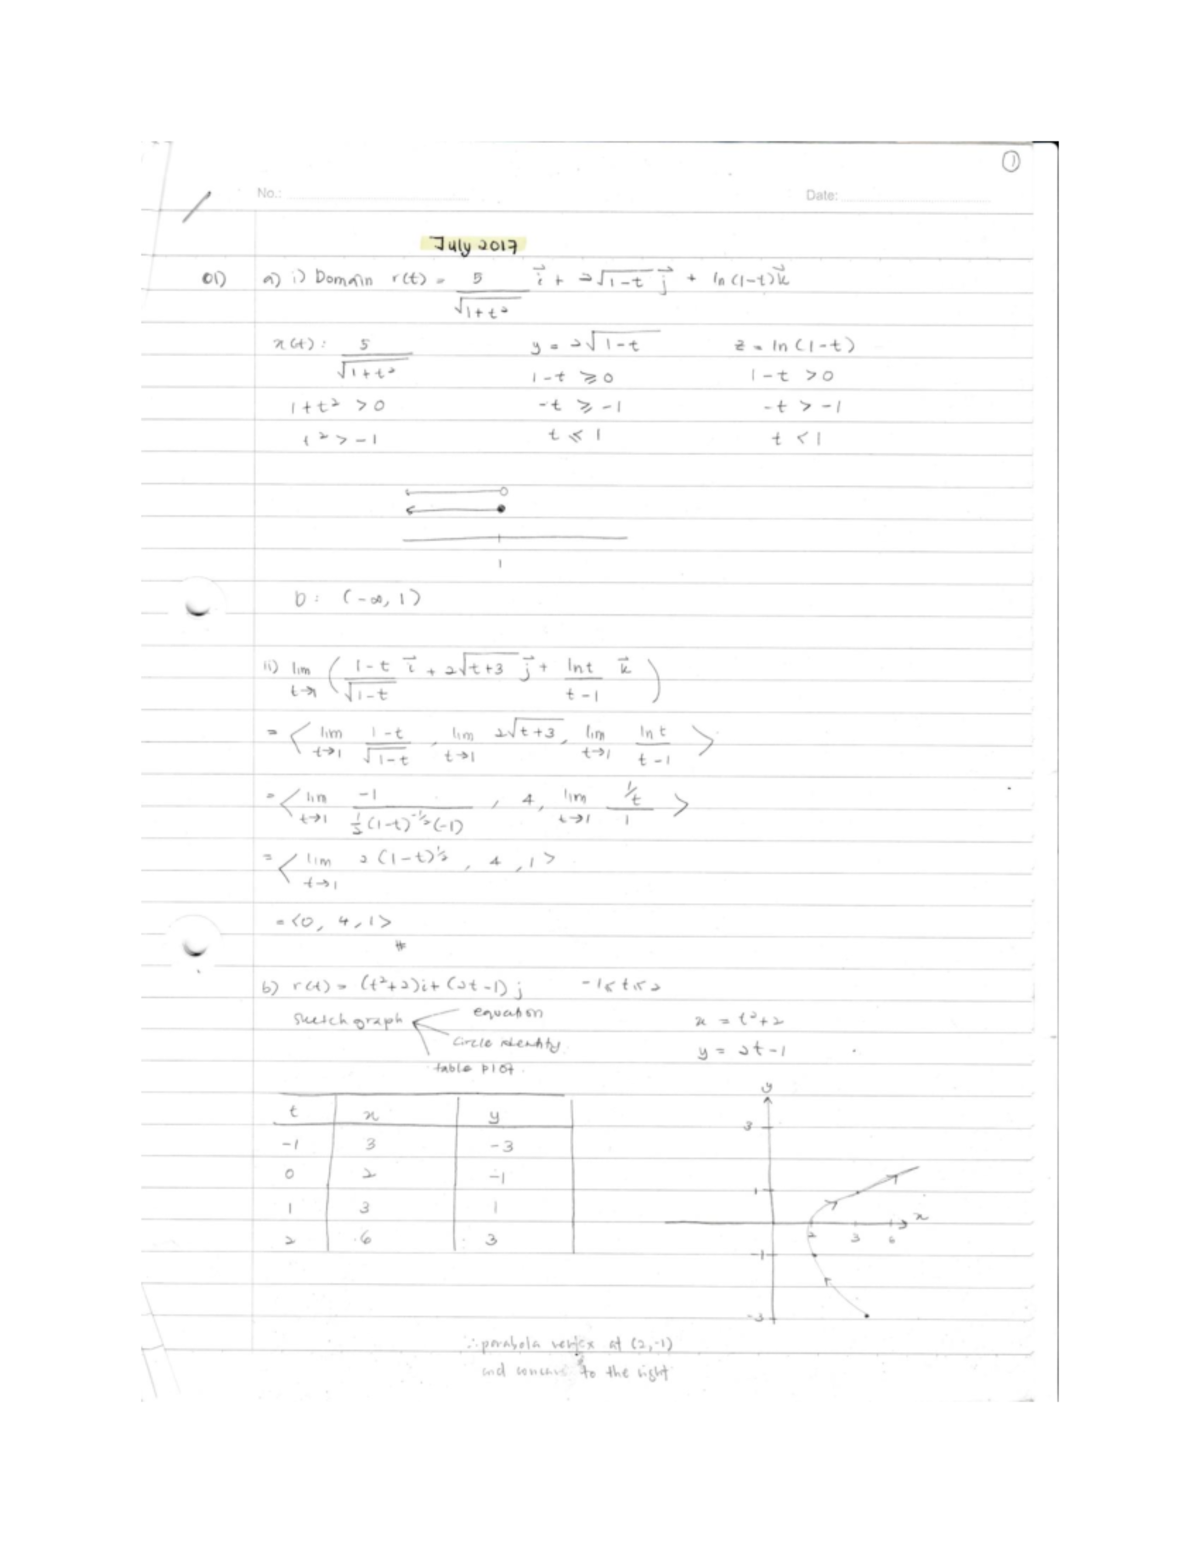 ①
No.: Date:
July 2017
01) a) i) Domain r(t) = 5/√(1+t²) i⃗ + 2√(1-t) j⃗ + ln(1-t)k⃗
x(t): 5/√(1+t²) y = 2√(1-t) z = ln(1-t)
1+t² > 0 1-t ≥ 0 1-t > 0
t² > -1 -t ≥ -1 -t > -1
t ≤ 1 t < 1
1
D: (-∞, 1)
ii) lim t→1 ( (1-t)/√(1-t) i⃗ + 2√(t+3) j⃗ + ln t/(t-1) k⃗ )
= < lim t→1 (1-t)/√(1-t), lim t→1 2√(t+3), lim t→1 ln t/(t-1) >
= < lim t→1 -1/(½(1-t)^(-½)(-1)), 4, lim t→1 (1/t)/1 >
= < lim t→1 2(1-t)^½, 4, 1 >
= <0, 4, 1> #
b) r(t) = (t²+2)i + (2t-1)j -1 ≤ t ≤ 2
sketch graph equation x = t²+2
circle identity y = 2t-1
table plot
t x y
-1 3 -3
0 2 -1
1 3 1
2 6 3
y
3
1
x
2 3 6
-1
-3
∴ parabola vertex at (2,-1)
and concave to the right